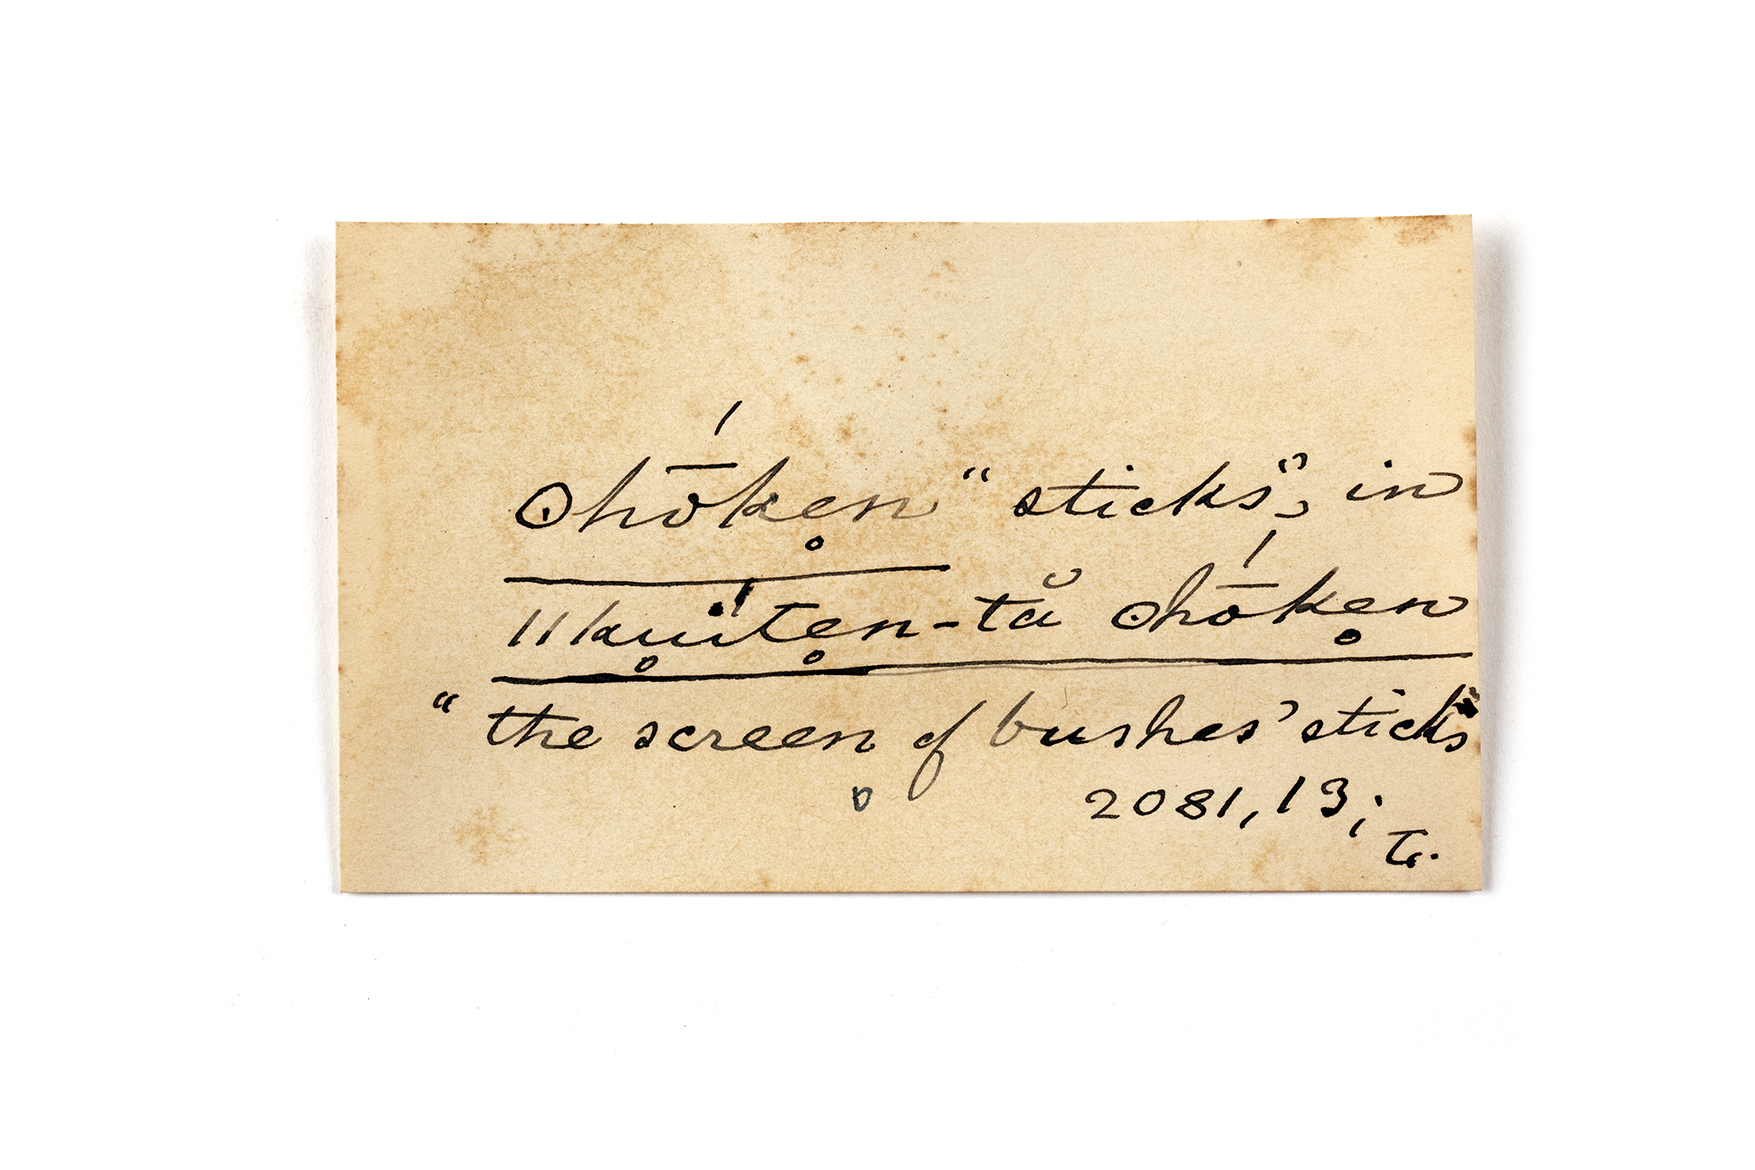 ʘhṓke̥n “sticks”, in
ǁku̥ḯte̥n-tă ʘhṓke̥n
“the screen of bushes’ sticks”
2081,13;